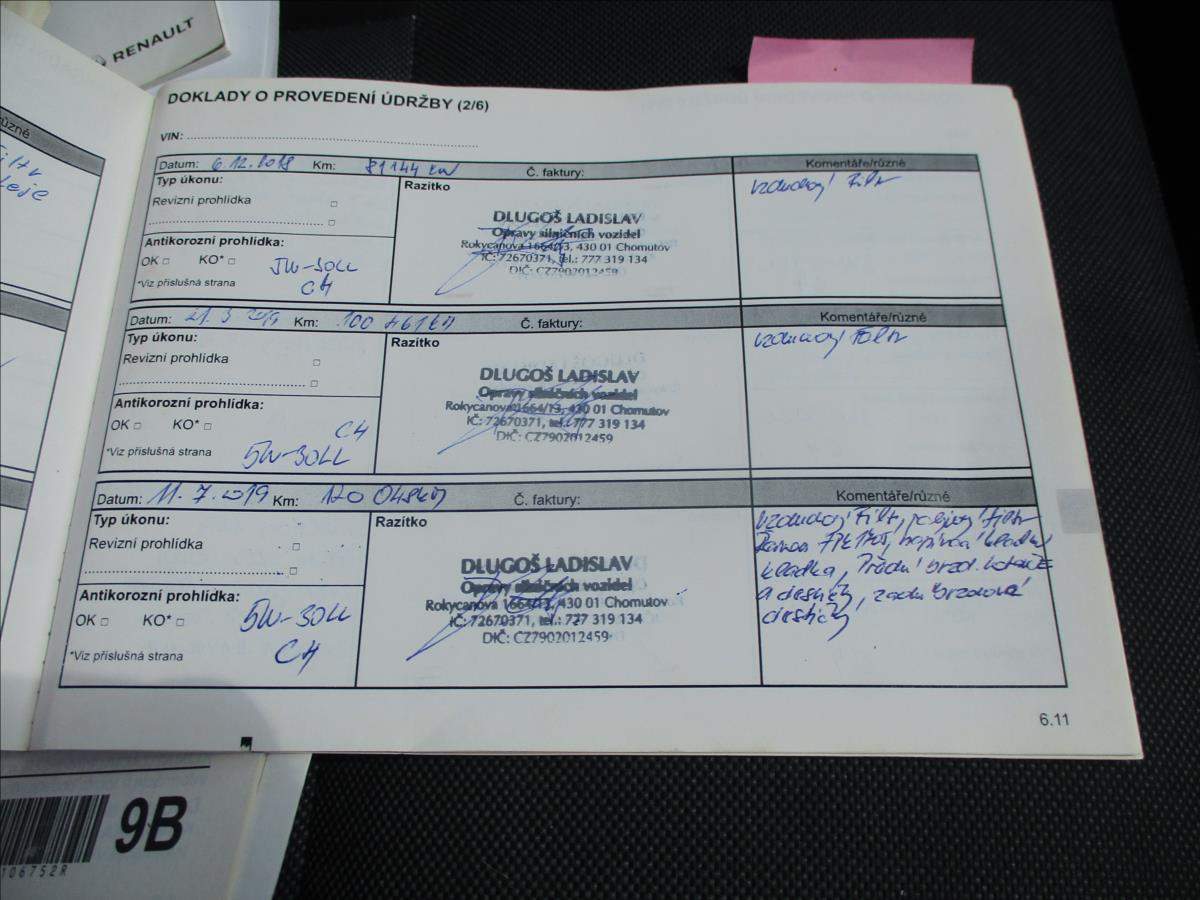 RENAULT
různé
DOKLADY O PROVEDENÍ ÚDRŽBY (2/6)
VIN:
Datum: 6.12.2018 Km: 81144 km Č. faktury: Komentáře/různé
Typ úkonu: Razítko vzduchový Filtr
Revizní prohlídka
DLUGOŠ LADISLAV
Opravy silničních vozidel
Rokycanova 1664/13, 430 01 Chomutov
IČ: 72670371, tel.: 777 319 134
DIČ: CZ7902012459
Antikorozní prohlídka:
OK KO* 5W-30LL
*Viz příslušná strana C4
Datum: 21. 3 2019 Km: 100 Č. faktury: Komentáře/různé
Typ úkonu: Razítko vzduchový Filtr
Revizní prohlídka
DLUGOŠ LADISLAV
Opravy silničních vozidel
Rokycanova 1664/13, 430 01 Chomutov
IČ: 72670371, tel.: 777 319 134
DIČ: CZ7902012459
Antikorozní prohlídka:
OK KO* C4
*Viz příslušná strana 5W-30LL
Datum: 11. 7. 2019 Km: 120 Č. faktury: Komentáře/různé
Typ úkonu: Razítko
Revizní prohlídka
DLUGOŠ LADISLAV
Opravy silničních vozidel
Rokycanova 1664/13, 430 01 Chomutov
IČ: 72670371, tel.: 777 319 134
DIČ: CZ7902012459
Antikorozní prohlídka:
OK KO* 5W-30LL
*Viz příslušná strana C4
vzduchový Filtr, palivový filtr
napínací kladka
kladka, Přední brzd. kotouče
a destičky, zadní brzdové
destičky
6.11
9B
106752R